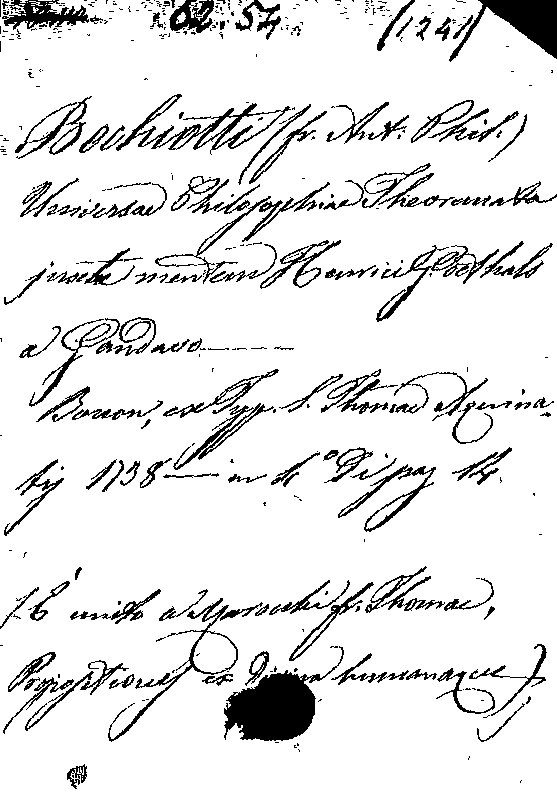 62. 54. (1241)
Bechiotti (fr. Ant. Phil.)
Universae Philosophiae Theoremata
juxta mentem Henrici Goethals
a Gandavo
Bonon, ex Typ. S. Thomae Aquina-
tis 1738 — in 4° Di pag 14
(È unito a Marocchi fr. Thomae,
Propositiones ex Divina humanaque)